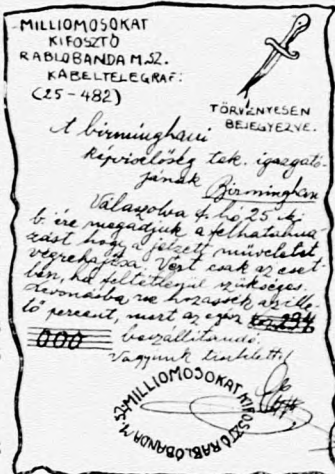 MILLIOMOSOKAT
KIFOSZTÓ
RABLOBANDA M.SZ.
KÁBELTELEGRÁF:
(25-482)
TÖRVÉNYESEN
BEJEGYEZVE.
A birminghami
képviselőség tek. igazgató-
jának Birmingham
Válaszolva f. hó 25. ki
b. ére megadjuk a felhatalma-
zást hogy a jelzett műveletet
végrehajtsa. Vért csak az eset-
ben, ha feltétlenül szükséges.
Levonásba ne hozassék az ille-
tő percent, mert az egész
000 beszállítandó.
Vagyunk tisztelettel
MILLIOMOSOKAT KIFOSZTÓ RABLÓBANDA M. SZ.